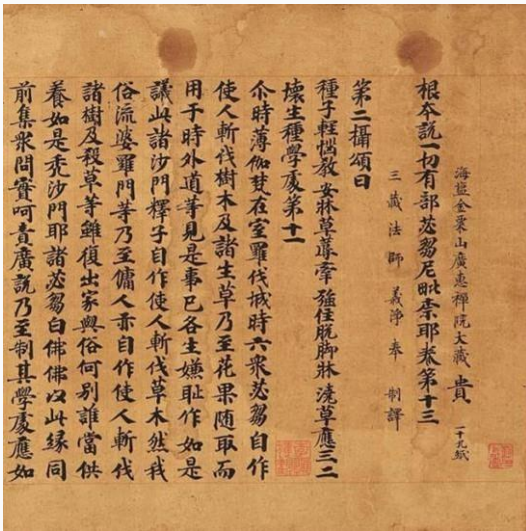 海鹽金粟山廣惠禪院大藏　貴　一十九紙
根本說一切有部苾芻尼毗奈耶卷第十三
三藏法師　義淨奉　制譯
第二攝頌曰
種子輕惱教　安牀草蓐牽　強住脫脚牀　澆草應三二
壞生種學處第十一
尒時薄伽梵在室羅伐城時六衆苾芻自作
使人斬伐樹木及諸生草乃至花果隨取而
用于時外道等見是事已各生嫌恥作如是
議此諸沙門釋子自作使人斬伐草木然我
俗流婆羅門等乃至傭人亦自作使人斬伐
諸樹及殺草等雖復出家與俗何別誰當供
養如是禿沙門耶諸苾芻白佛佛以此緣同
前集衆問實呵責廣說乃至制其學處應如